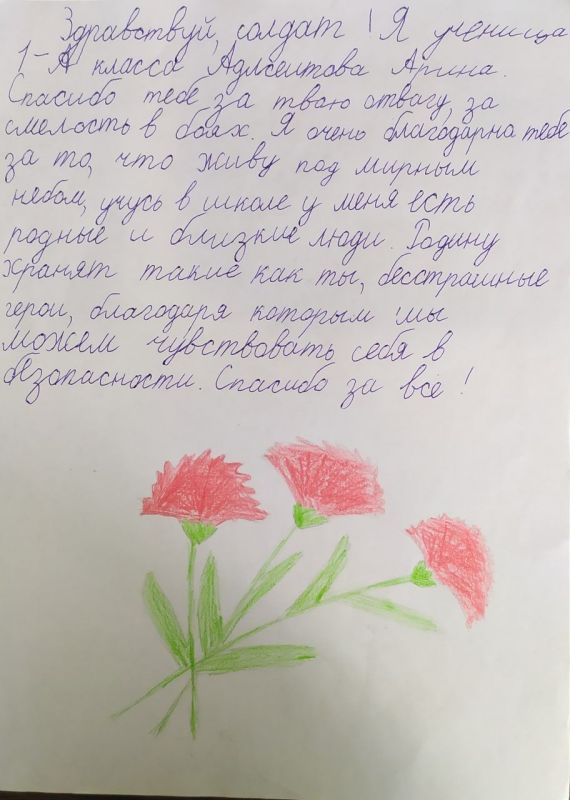 Здравствуй, солдат! Я ученица
1-А класса Адлсеитова Арина.
Спасибо тебе за твою отвагу, за
смелость в боях. Я очень благодарна тебе
за то, что живу под мирным
небом, учусь в школе у меня есть
родные и близкие люди. Родину
хранят такие как ты, бесстрашные
герои, благодаря которым мы
можем чувствовать себя в
безопасности. Спасибо за все!